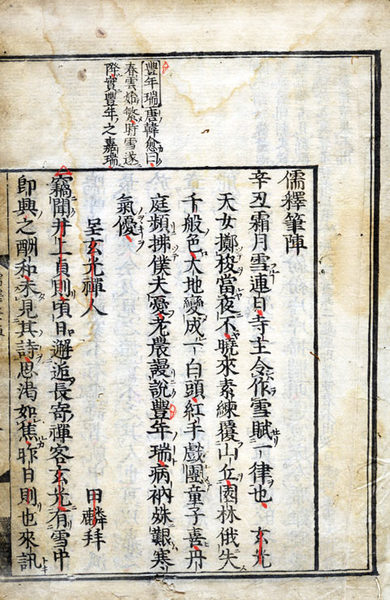 豐年瑞唐韓愈曰
春雲嬌繁時雪遂
降實豐年之嘉瑞
儒釋筆陣
辛丑霜月雪連日寺主令作雪賦一律也 玄光
天女擲梭當夜不曉來素練覆山丘園林俄失
千般色大地變成一白頭紅手戲團童子喜丹
庭頻拂僕夫憂老農謾說豐年瑞病衲殊艱寒
氣優
呈玄光禪人 甲麟拜
竊聞井上貞則頃日邂逅長寄禪客玄光有雪中
即興之酬和未見其詩思渴如焦昨日則也來訊